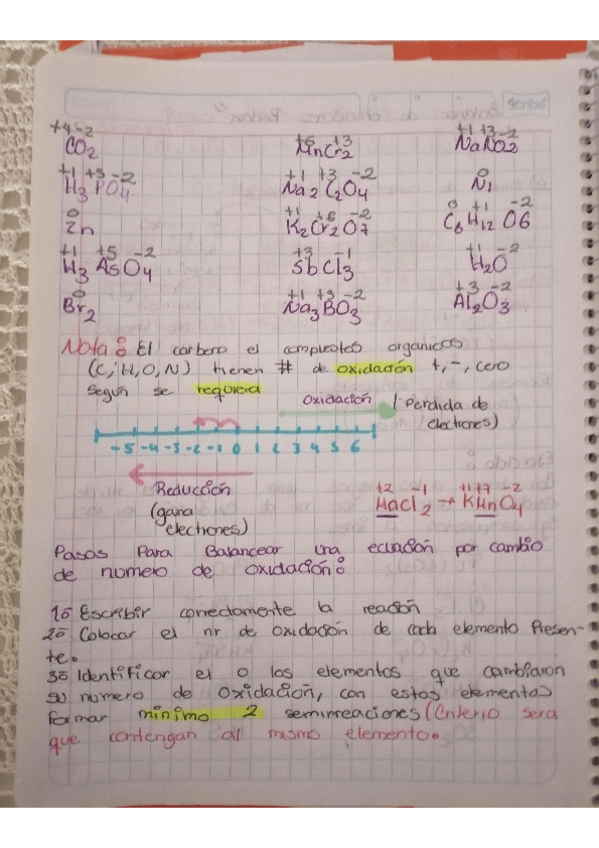 +4 -2
CO2
+6 +3
MnCr2
+1 +3 -2
NaNO2
+1 +5 -2
H3 PO4
+1 +3 -2
Na2 C2O4
0
N1
0
Zn
+1 +6 -2
K2Cr2O7
0 +1 -2
C6 H12 O6
+1 +5 -2
H3 AsO4
+3 -1
SbCl3
+1 -2
H2O
0
Br2
+1 +3 -2
Na3BO3
+3 -2
Al2O3
Nota: El carbono el compuestos organicos
(C, H, O, N) tienen # de oxidación +, -, cero
segun se requiera
Oxidación (Perdida de
electrones)
-5 -4 -3 -2 -1 0 1 2 3 4 5 6
Reducción
(gana
electrones)
+2 -1 +1 +7 -2
MaCl2 → KMnO4
Pasos Para Balancear una ecuación por cambio
de numero de oxidación:
1º Escribir correctamente la reacción
2º Colocar el nr de oxidación de cada elemento Presen-
te.
3º Identificar el o los elementos que cambiaron
su numero de oxidación, con estos elementos
formar minimo 2 semirreaciones (Criterio sera
que contengan al mismo elemento.